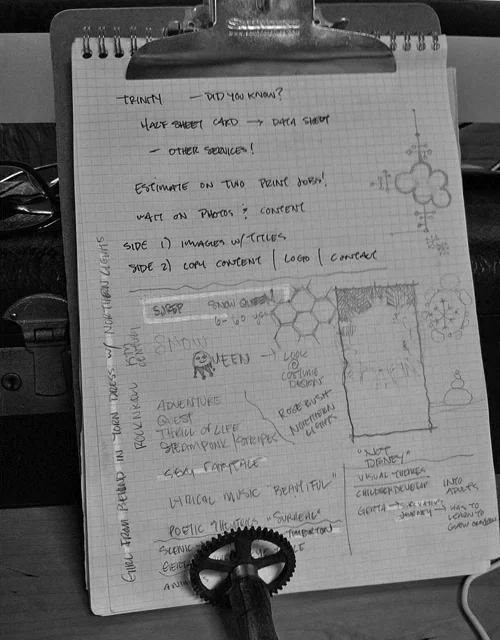 TRINITY — DID YOU KNOW?
HALF SHEET CARD → DATA SHEET
— OTHER SERVICES!
ESTIMATE ON TWO PRINT JOBS!
WAIT ON PHOTOS & CONTENT
SIDE 1) IMAGES W/ TITLES
SIDE 2) COPY CONTENT | LOGO | CONTACT
SNOW QUEEN
SNOW
QUEEN → LOOK @
COSTUME
DESIGN
ROSE BUSH
NORTHERN
LIGHTS
ADVENTURE
QUEST
THRILL OF LIFE
STEAMPUNK/STRIPES
SEXY FAIRYTALE
LYRICAL MUSIC "BEAUTIFUL"
POETIC "SURREAL"
SCENIC TIM BURTON
"NOT
DISNEY"
VISUAL THEMES
CHILDREN DEVELOP INTO
ADULTS
GERTA →
JOURNEY → HAS TO
LEARN TO
GIRL FROM BEHIND IN TORN DRESS W/ NORTHERN LIGHTS